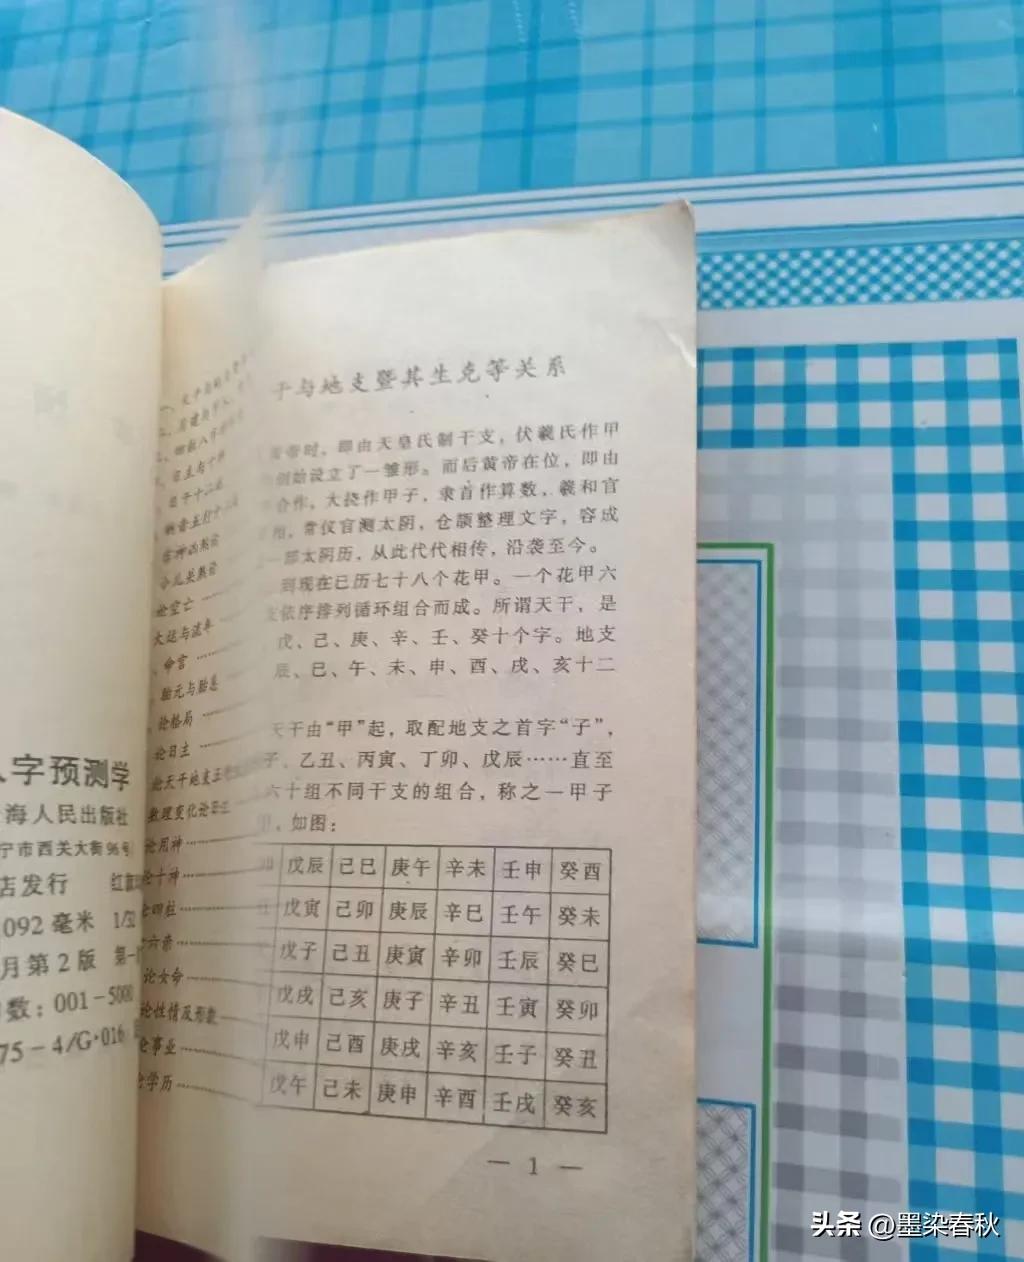 字预测学
海人民出版社
宁市西关大街96号
店发行
092毫米 1/32
月第2版
数：001－5000
75－4/G·016
与地支
论空亡
大运与流年
命言
胎元与胎息
论格局
论日主
论用神
论十神
论四柱
六亲
论女命
论性情及形貌
事业
学历
干与地支暨其生克等关系
帝时，即由天皇氏制干支，伏羲氏作甲
创始设立了一雏形。而后黄帝在位，即由
合作，大挠作甲子，隶首作算数，羲和官
相，常仪官测太阴，仓颉整理文字，容成
一部太阴历，从此代代相传，沿袭至今。
到现在已历七十八个花甲。一个花甲六
依序排列循环组合而成。所谓天干，是
戊、己、庚、辛、壬、癸十个字。地支
辰、巳、午、未、申、酉、戌、亥十二
天干由“甲”起，取配地支之首字“子”，
子、乙丑、丙寅、丁卯、戊辰……直至
六十组不同干支的组合，称之一甲子
，如图：
戊辰 己巳 庚午 辛未 壬申 癸酉
戊寅 己卯 庚辰 辛巳 壬午 癸未
戊子 己丑 庚寅 辛卯 壬辰 癸巳
戊戌 己亥 庚子 辛丑 壬寅 癸卯
戊申 己酉 庚戌 辛亥 壬子 癸丑
戊午 己未 庚申 辛酉 壬戌 癸亥
— 1 —
头条 @墨染春秋